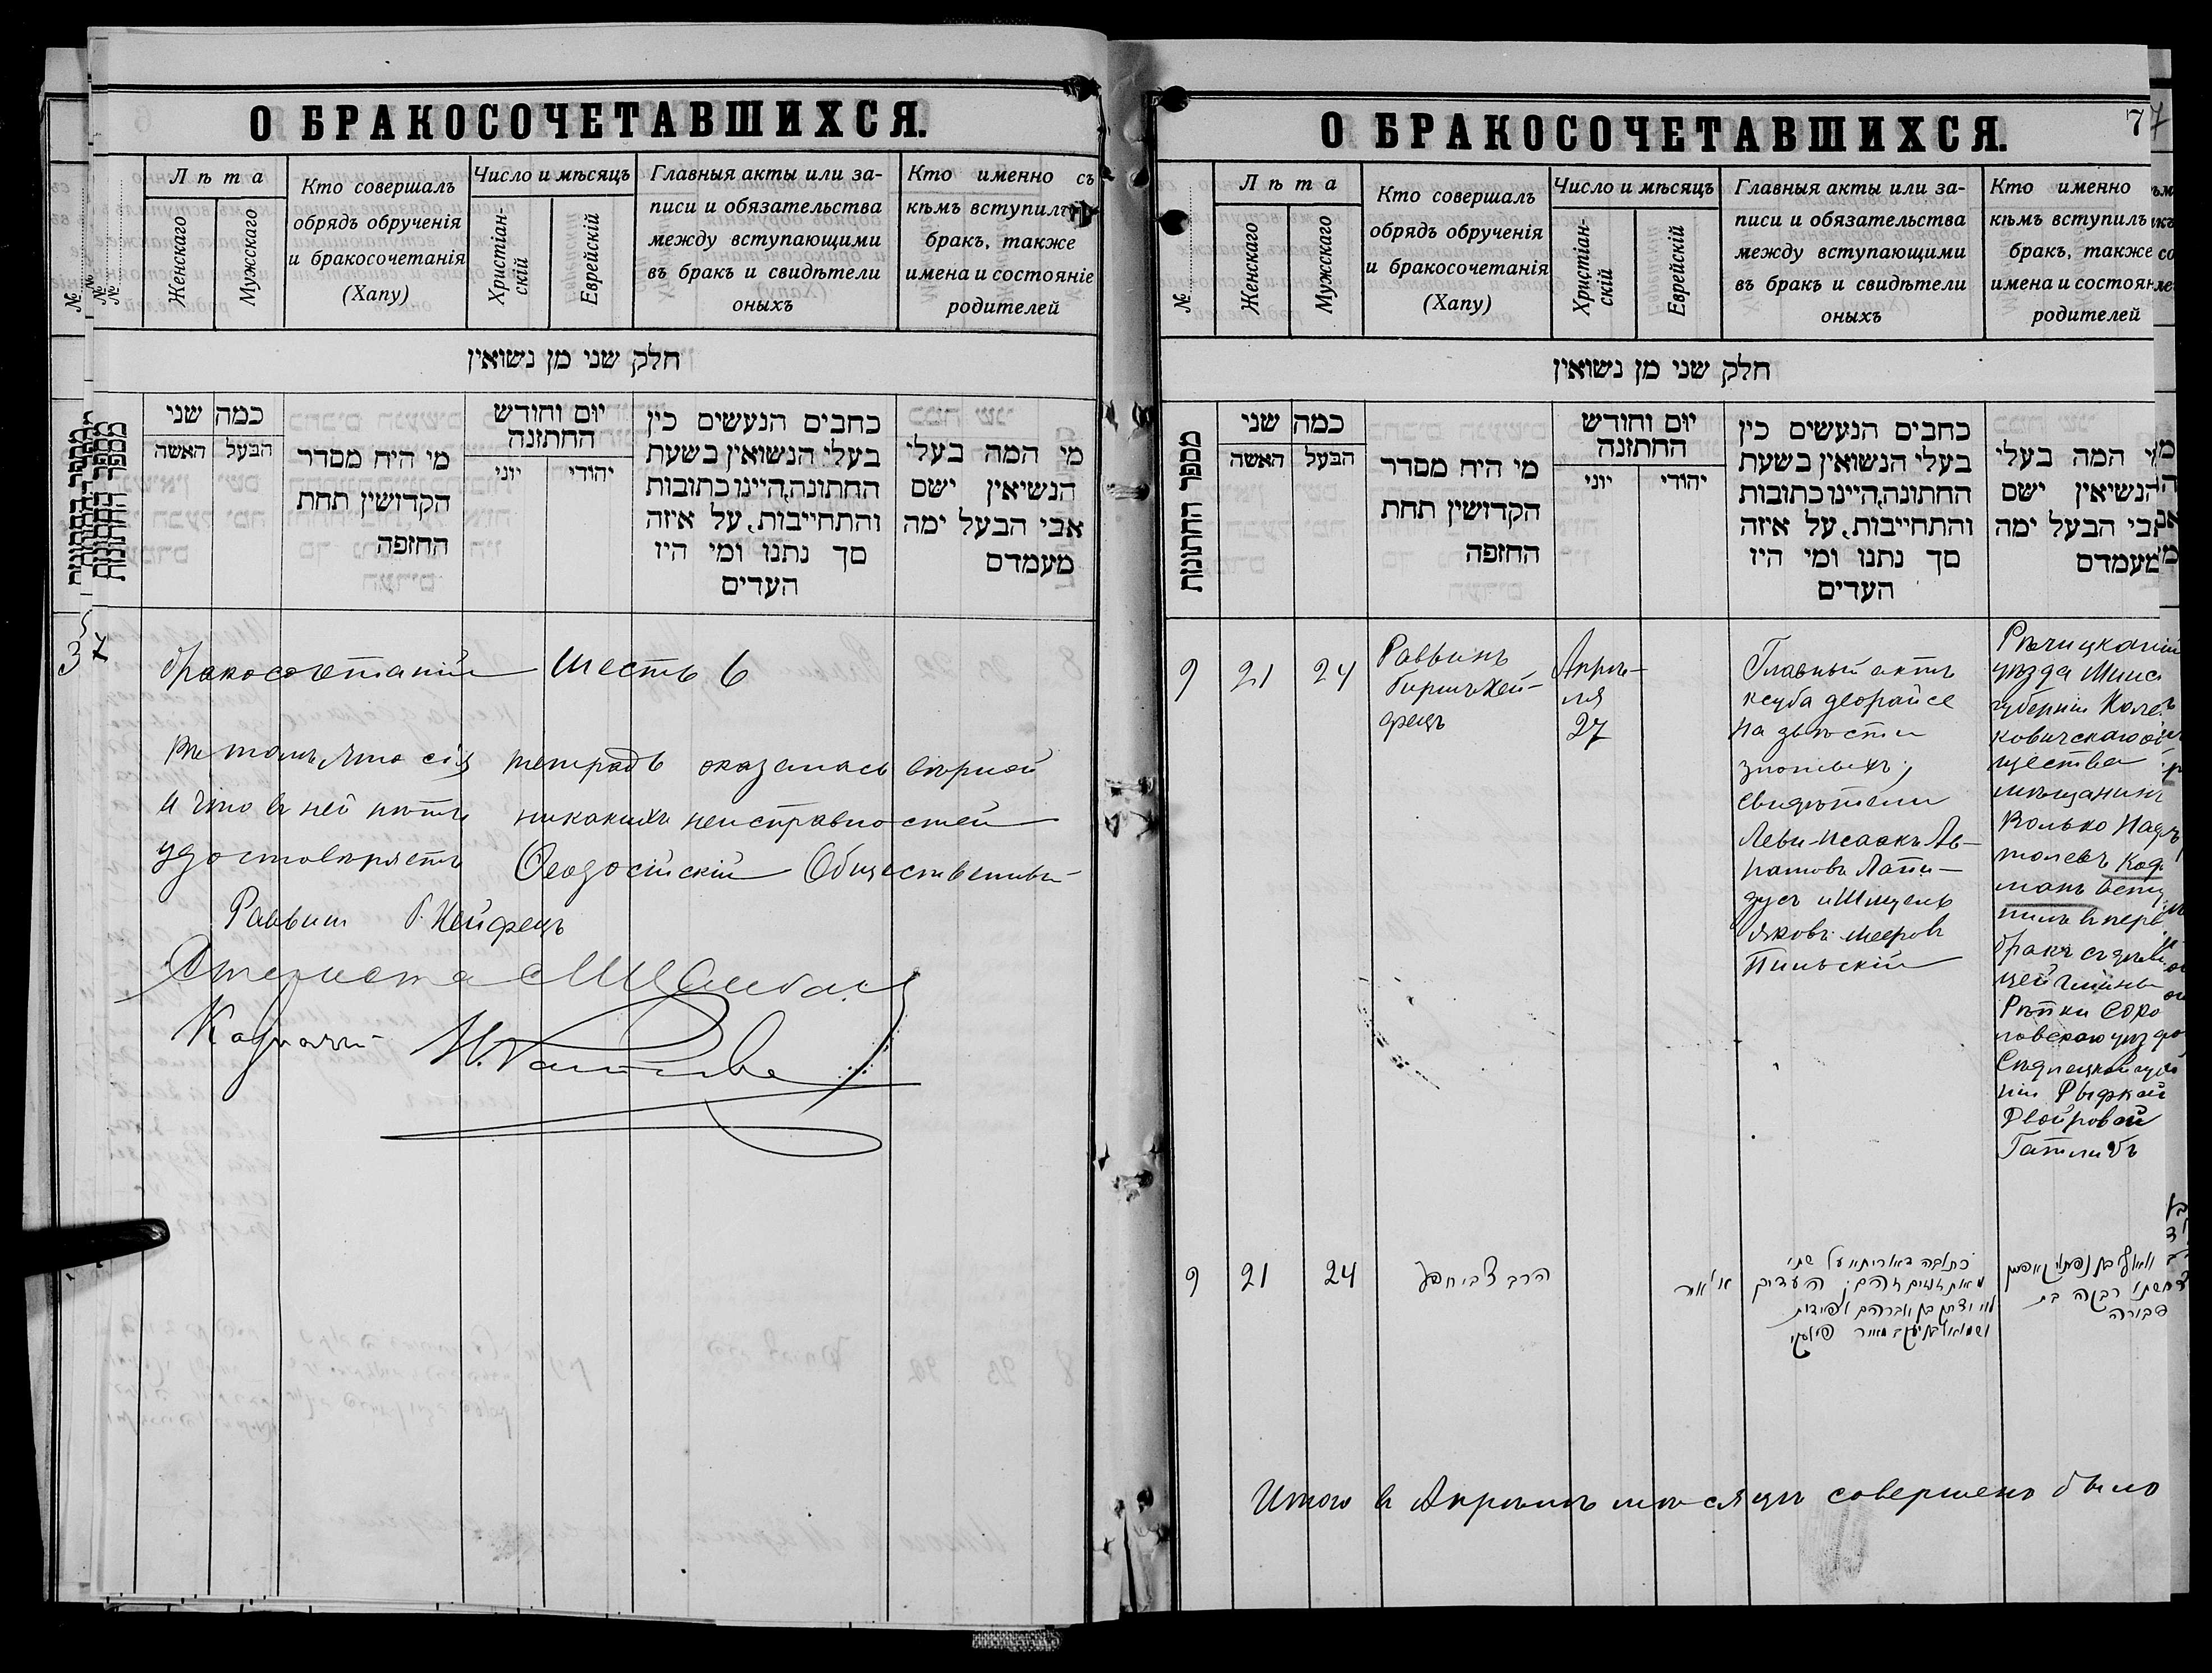 О БРАКОСОЧЕТАВШИХСЯ.
№
Лѣта
Женскаго
Мужскаго
Кто совершалъ
обрядъ обрученія
и бракосочетанія
(Хапу)
Число и мѣсяцъ
Христіан-
скій
Еврейскій
Главныя акты или за-
писи и обязательства
между вступающими
въ бракъ и свидѣтели
оныхъ
Кто именно съ
кѣмъ вступилъ
бракъ, также
имена и состояніе
родителей
חלק שני מן נשואין
מספר החתונות
כמה שני
האשה
הבעל
מי היה מסדר
הקדושין תחת
החופה
יום וחודש
החתונה
יוני
יהודי
כתבים הנעשים בין
בעלי הנשואין בשעת
החתונה, היינו כתובות
והתחייבות, על איזה
סך נתנו ומי היו
העדים
מי המה בעלי
הנשיאין ישם
אבי הבעל ימה
מעמדם
3
бракосочетаній шесть 6
Въ томъ, что сія тетрадь оказалась вѣрной
и что в ней нѣтъ никакихъ неисправностей
удостовѣряетъ Ѳеодосійскій Общественный
Раввинъ Б. Хейфецъ
Староста
Казначей
О БРАКОСОЧЕТАВШИХСЯ.
7
№
Лѣта
Женскаго
Мужскаго
Кто совершалъ
обрядъ обрученія
и бракосочетанія
(Хапу)
Число и мѣсяцъ
Христіан-
скій
Еврейскій
Главныя акты или за-
писи и обязательства
между вступающими
въ бракъ и свидѣтели
оныхъ
Кто именно
кѣмъ вступилъ
бракъ, также
имена и состоян
родителей
חלק שני מן נשואין
מספר החתונות
כמה שני
האשה
הבעל
מי היה מסדר
הקדושין תחת
החופה
יום וחודש
החתונה
יוני
יהודי
כתבים הנעשים בין
בעלי הנשואין בשעת
החתונה, היינו כתובות
והתחייבות, על איזה
סך נתנו ומי היו
העדים
המה בעלי
הנשיאין ישם
אבי הבעל ימה
מעמדם
9 21 24
Раввинъ
Биршъ Хей-
фецъ
Апрѣ-
ля
27
Главный актъ
ксуба деорайсе
на двѣсти
злотыхъ;
свидѣтели
Леви-Исаакъ Ав-
рамовъ Лапи-
дусъ и Шмуель
Яковъ Мееровъ
Пильскій
Рѣчицкаго
уѣзда Минс
губерніи
ковичскаго
щества
мѣщанинъ
Волько
вступ
пилъ в перв
бракъ съ
цей гмины
Рѣпки Соко
ловскаго уѣзда
Сѣдлецкой губер
ніи Рыфкой
Двойровой
Готлибъ
9 21 24
הרב צבי חפץ
כתובה דאוריתא על שתי
מאת זוזים זהב; העדים
לוי יצחק בן אברהם לאפידות
ושמואל יעקב מאיר פילסקי
אשתו רבקה בת
דבורה
Итого в Апрѣлѣ мѣсяцѣ совершено было